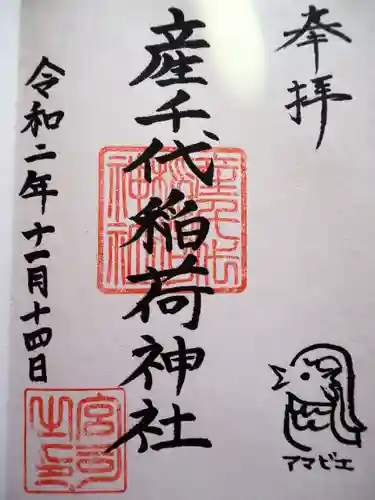 奉拝
産千代稲荷神社
令和二年十一月十四日
アマビエ
宮司之印